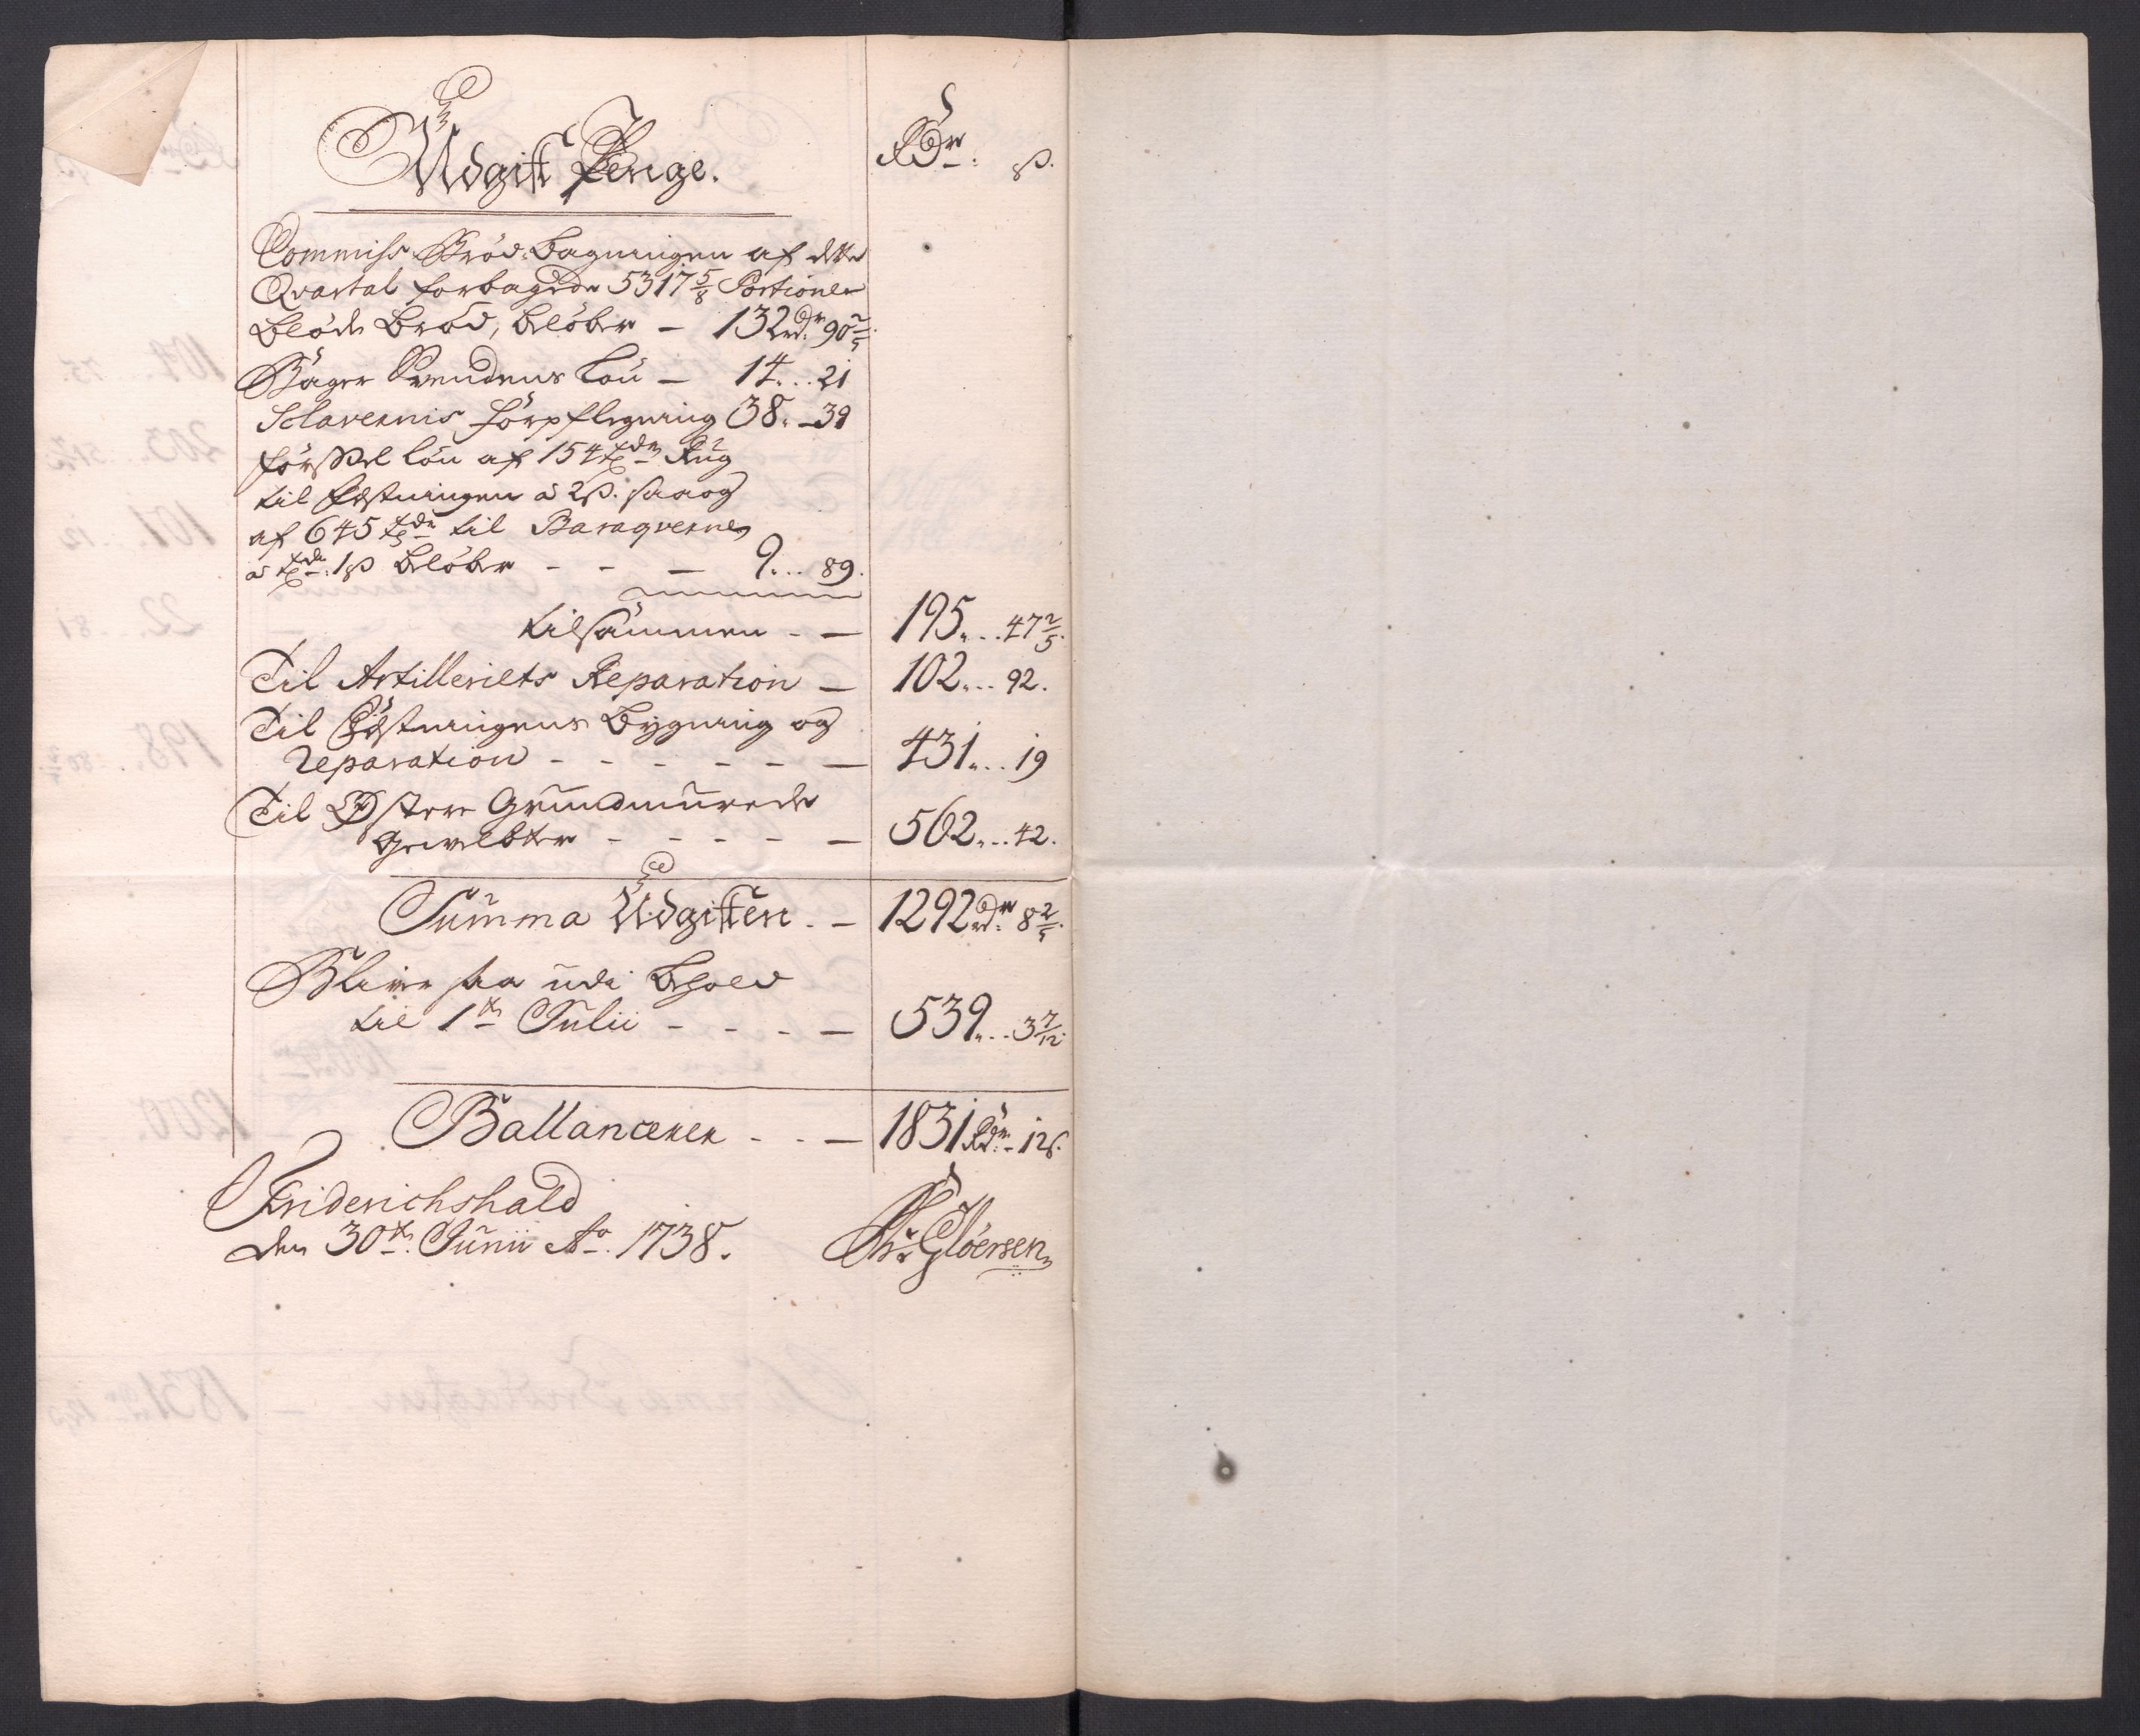 Udgift Penge.
Rdr: ß.
Commiss Brød-bagningen af dette
Qvartal forbagede 5317 5/8 Portioner
bløde brød, beløber – 132 rdr: 90 2/5.
Bager Svendens løn – 14... 21
Slavernis forpflegning 38. – 39
førsel løn af 154 tdr Rug
til Fæstningen à 2ß. saa og
af 645 tdr til Baraqverne
à tde: 1ß beløber - - – 9... 89.
tilsammen - – 195... 47 2/5.
Til Artilleriets Reparation – 102... 92.
Til Fæstningens bygning og
reparation - - - - - – 431... 19
Til Østere Grundmurede
gevelbter - - - - – 562... 42.
Summa Udgiften. – 1292 rdr: 8 2/5.
Bliver saa udi behold
til 1te Julii - - - – 539... 3 7/12.
Ballancerer - - – 1831 Rdr: 12ß.
Friderichshald
den 30te: Junii Ao: 1738.
Chr: Gløersen